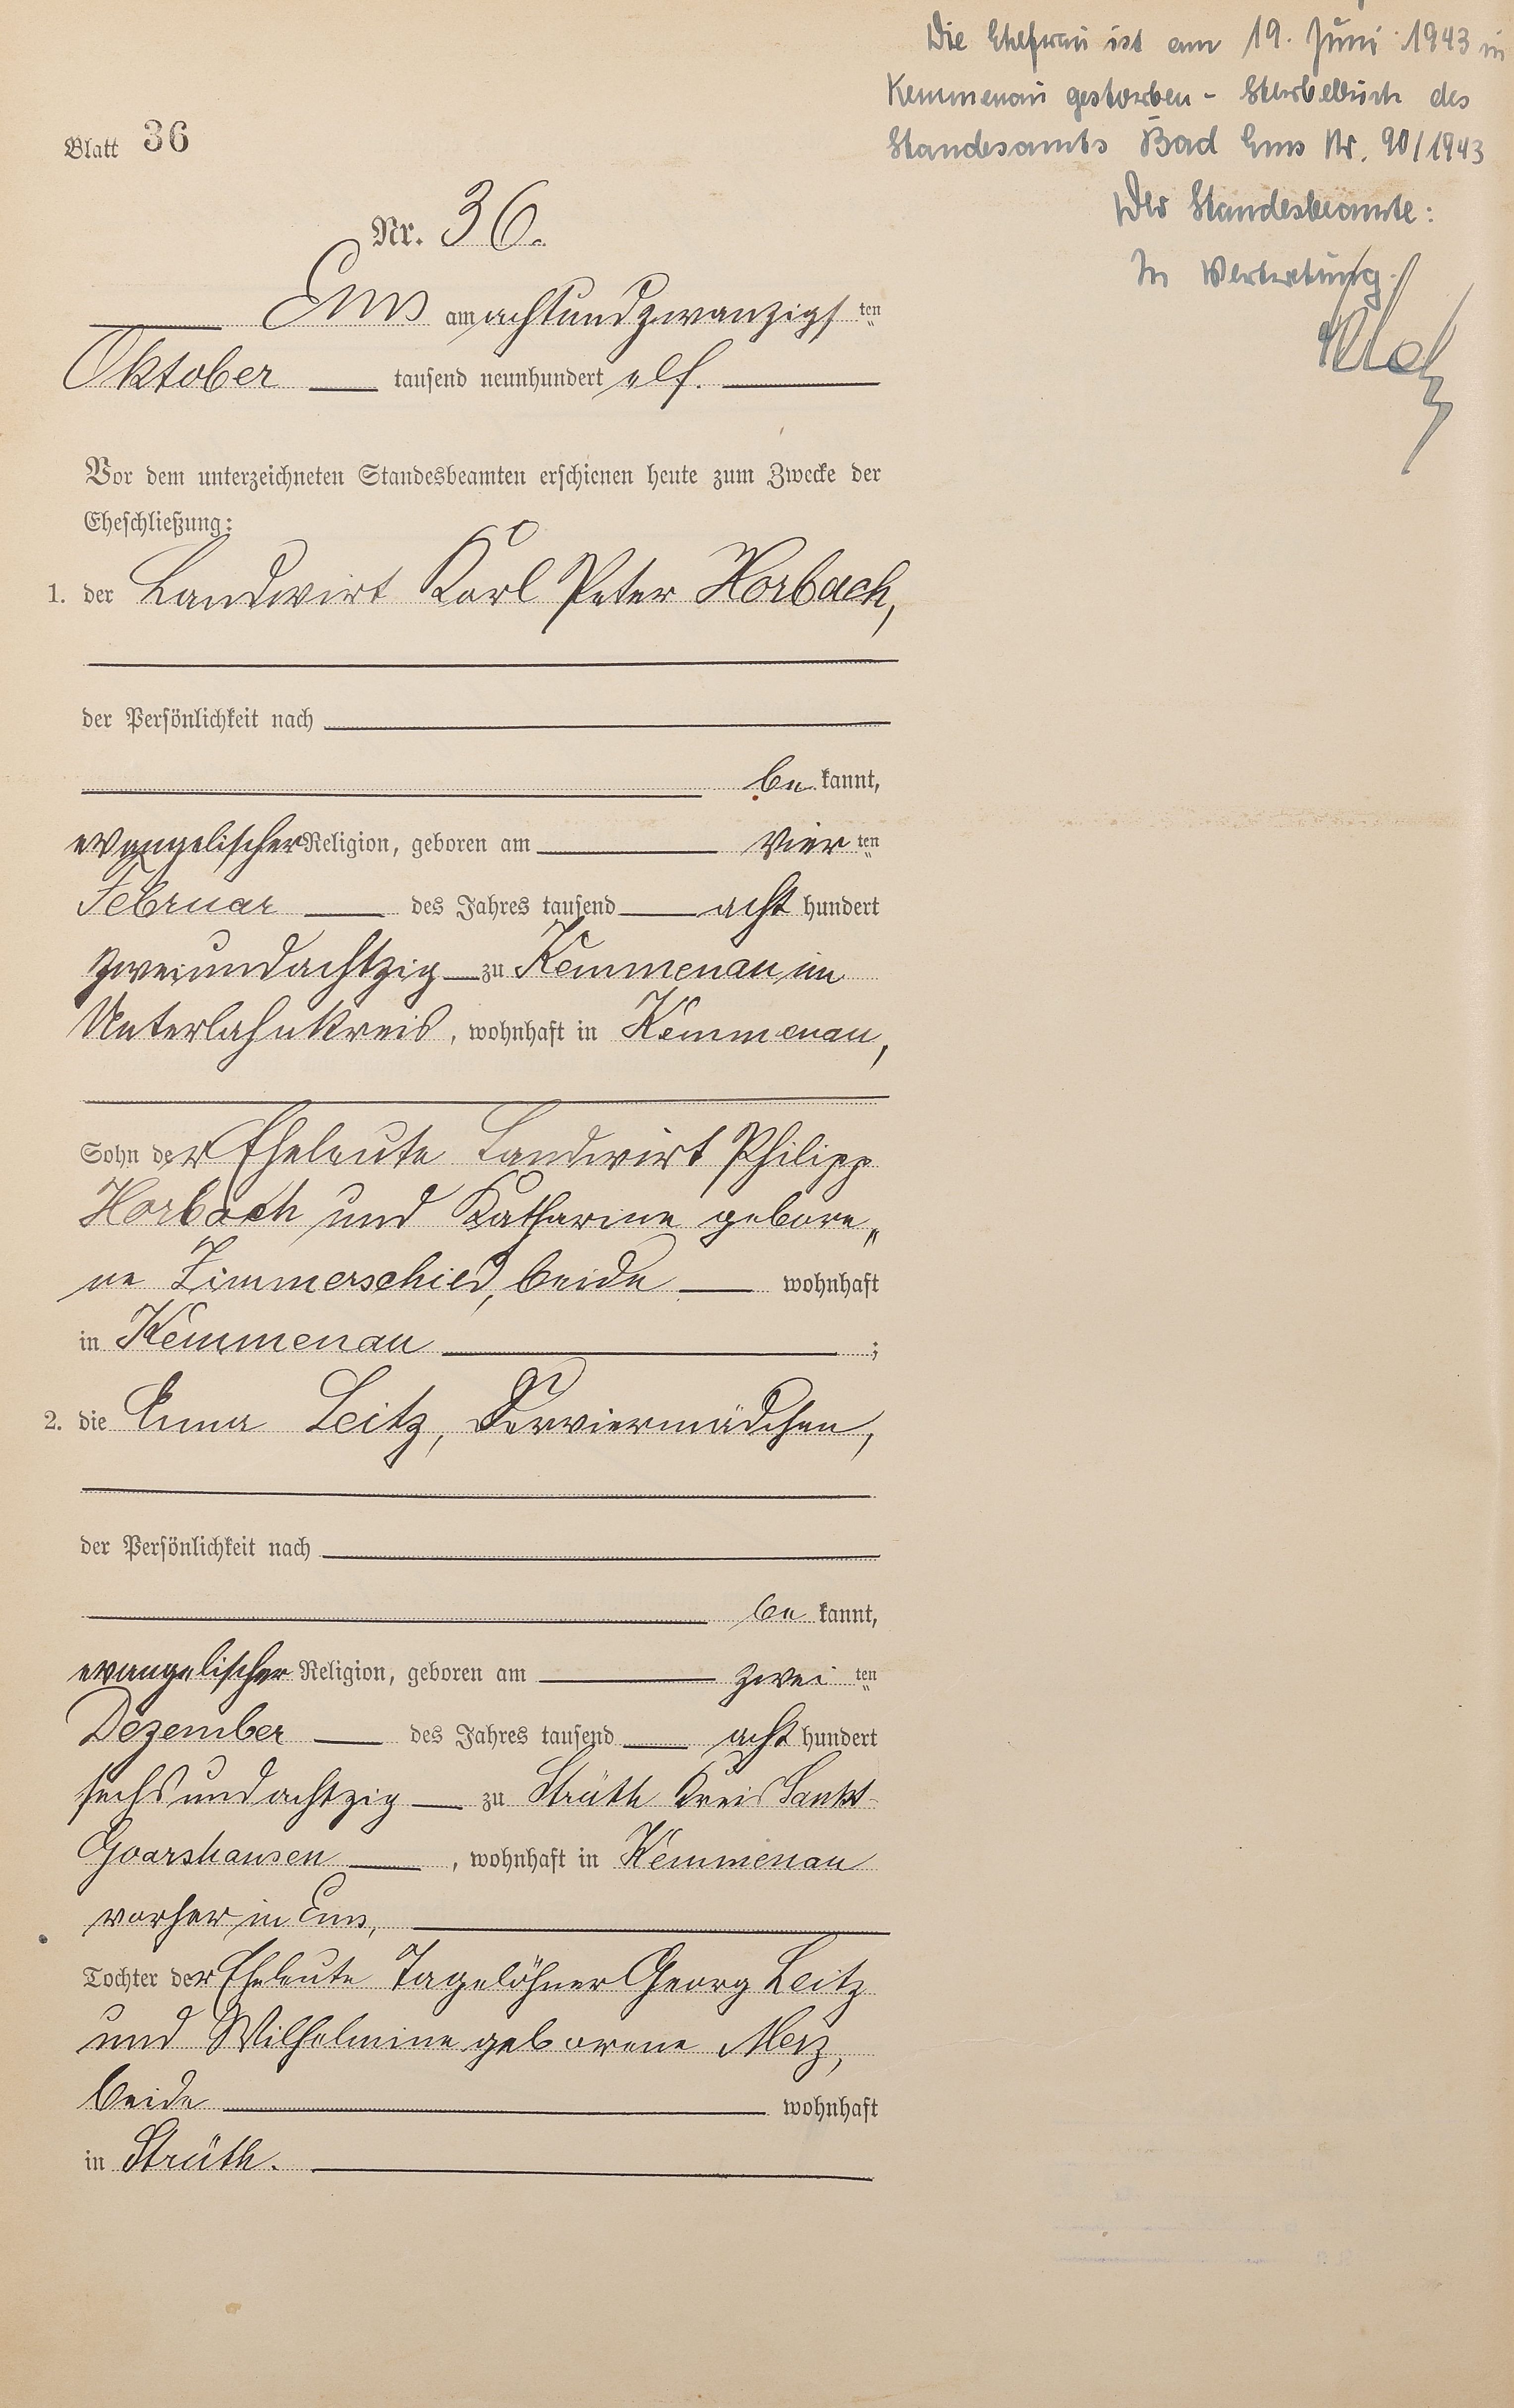 Die Ehefrau ist am 19. Juni 1943 in
Kemmenau gestorben - Sterbebuch des
Standesamts Bad Ems Nr. 90/1943
Der Standesbeamte:
In Vertretung.
Blatt 36
Nr. 36.
Ems am achtundzwanzigsten
Oktober tausend neunhundert elf.
Vor dem unterzeichneten Standesbeamten erschienen heute zum Zwecke der
Eheschließung:
1. der Landwirt Karl Peter Horbach,
der Persönlichkeit nach
bekannt,
evangelischer Religion, geboren am vierten
Februar des Jahres tausend acht hundert
zweiundachtzig zu Kemmenau im
Unterlahnkreis, wohnhaft in Kemmenau,
Sohn der Eheleute Landwirt Philipp
Horbach und Katharine gebore„
ne Zimmerschied, beide wohnhaft
in Kemmenau ;
2. die Leitz, Serviermädchen,
der Persönlichkeit nach
bekannt,
evangelischer Religion, geboren am zweiten
Dezember des Jahres tausend acht hundert
sechsundachtzig zu Strüth Kreis Sankt-
Goarshausen , wohnhaft in Kemmenau
vorher in Ems,
Tochter der Eheleute Tagelöhner Georg Leitz
und Wilhelmine geborene Merz,
beide wohnhaft
in Strüth.